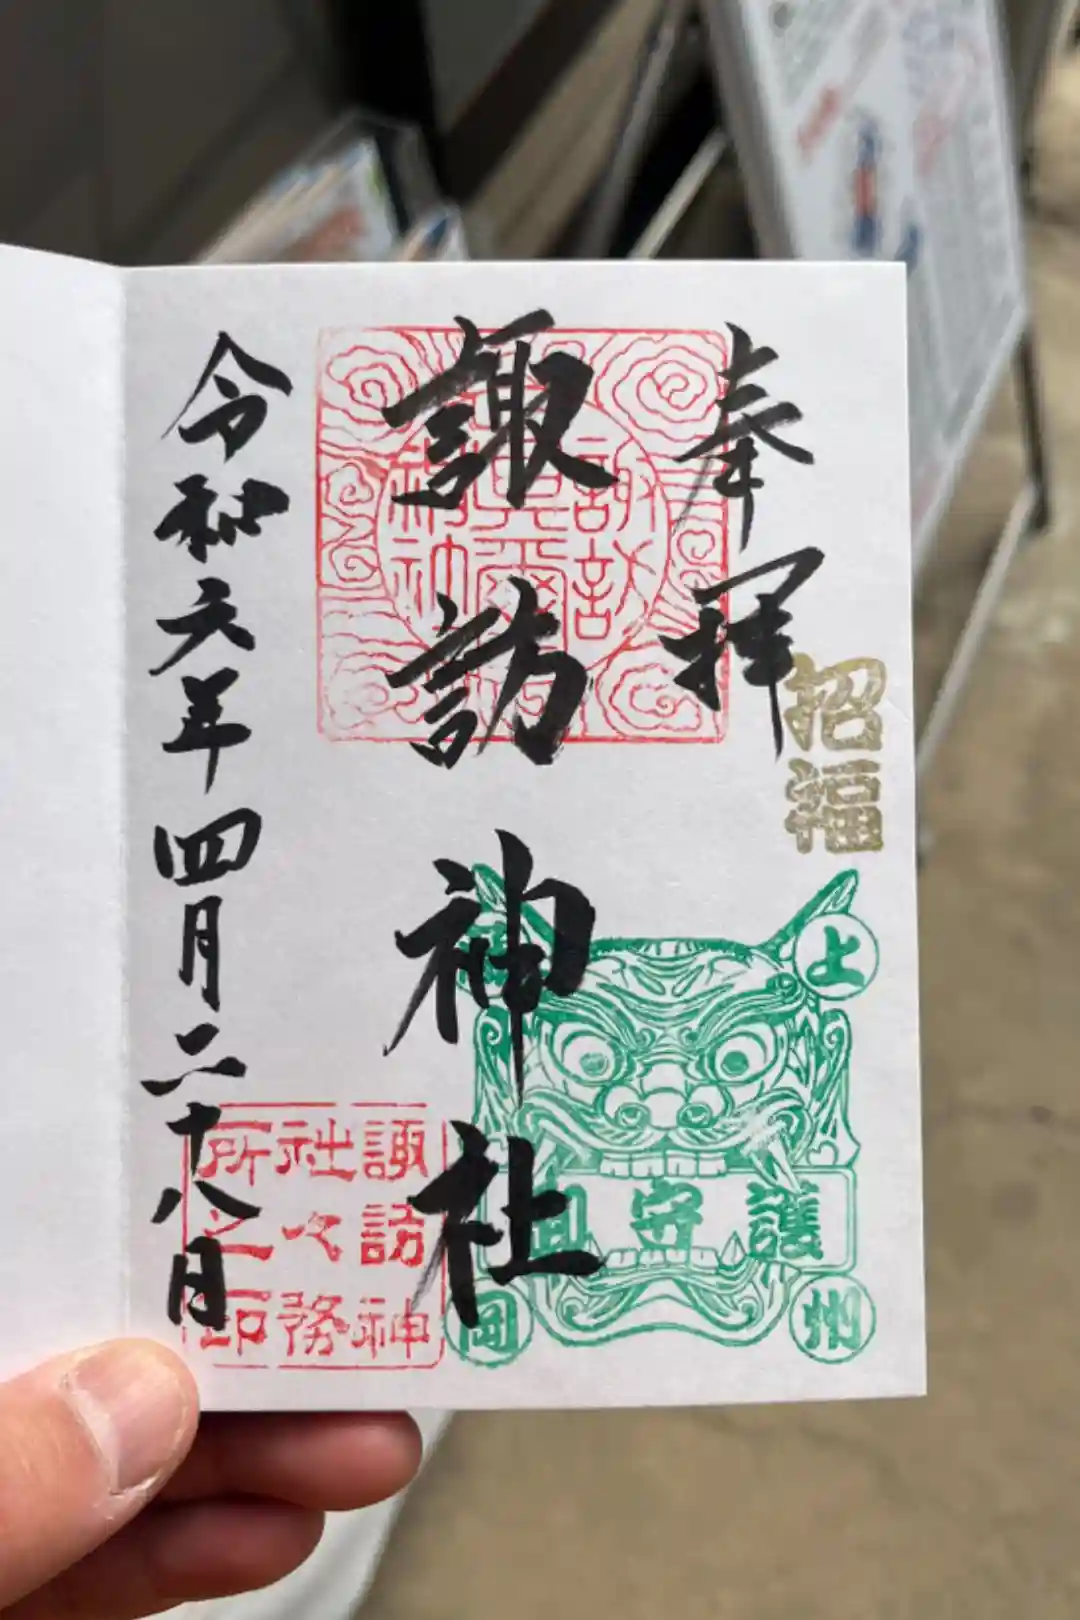 奉拝
招福
諏訪神社
令和六年四月二十八日
上州
護守面
諏訪神
社々務
所之印